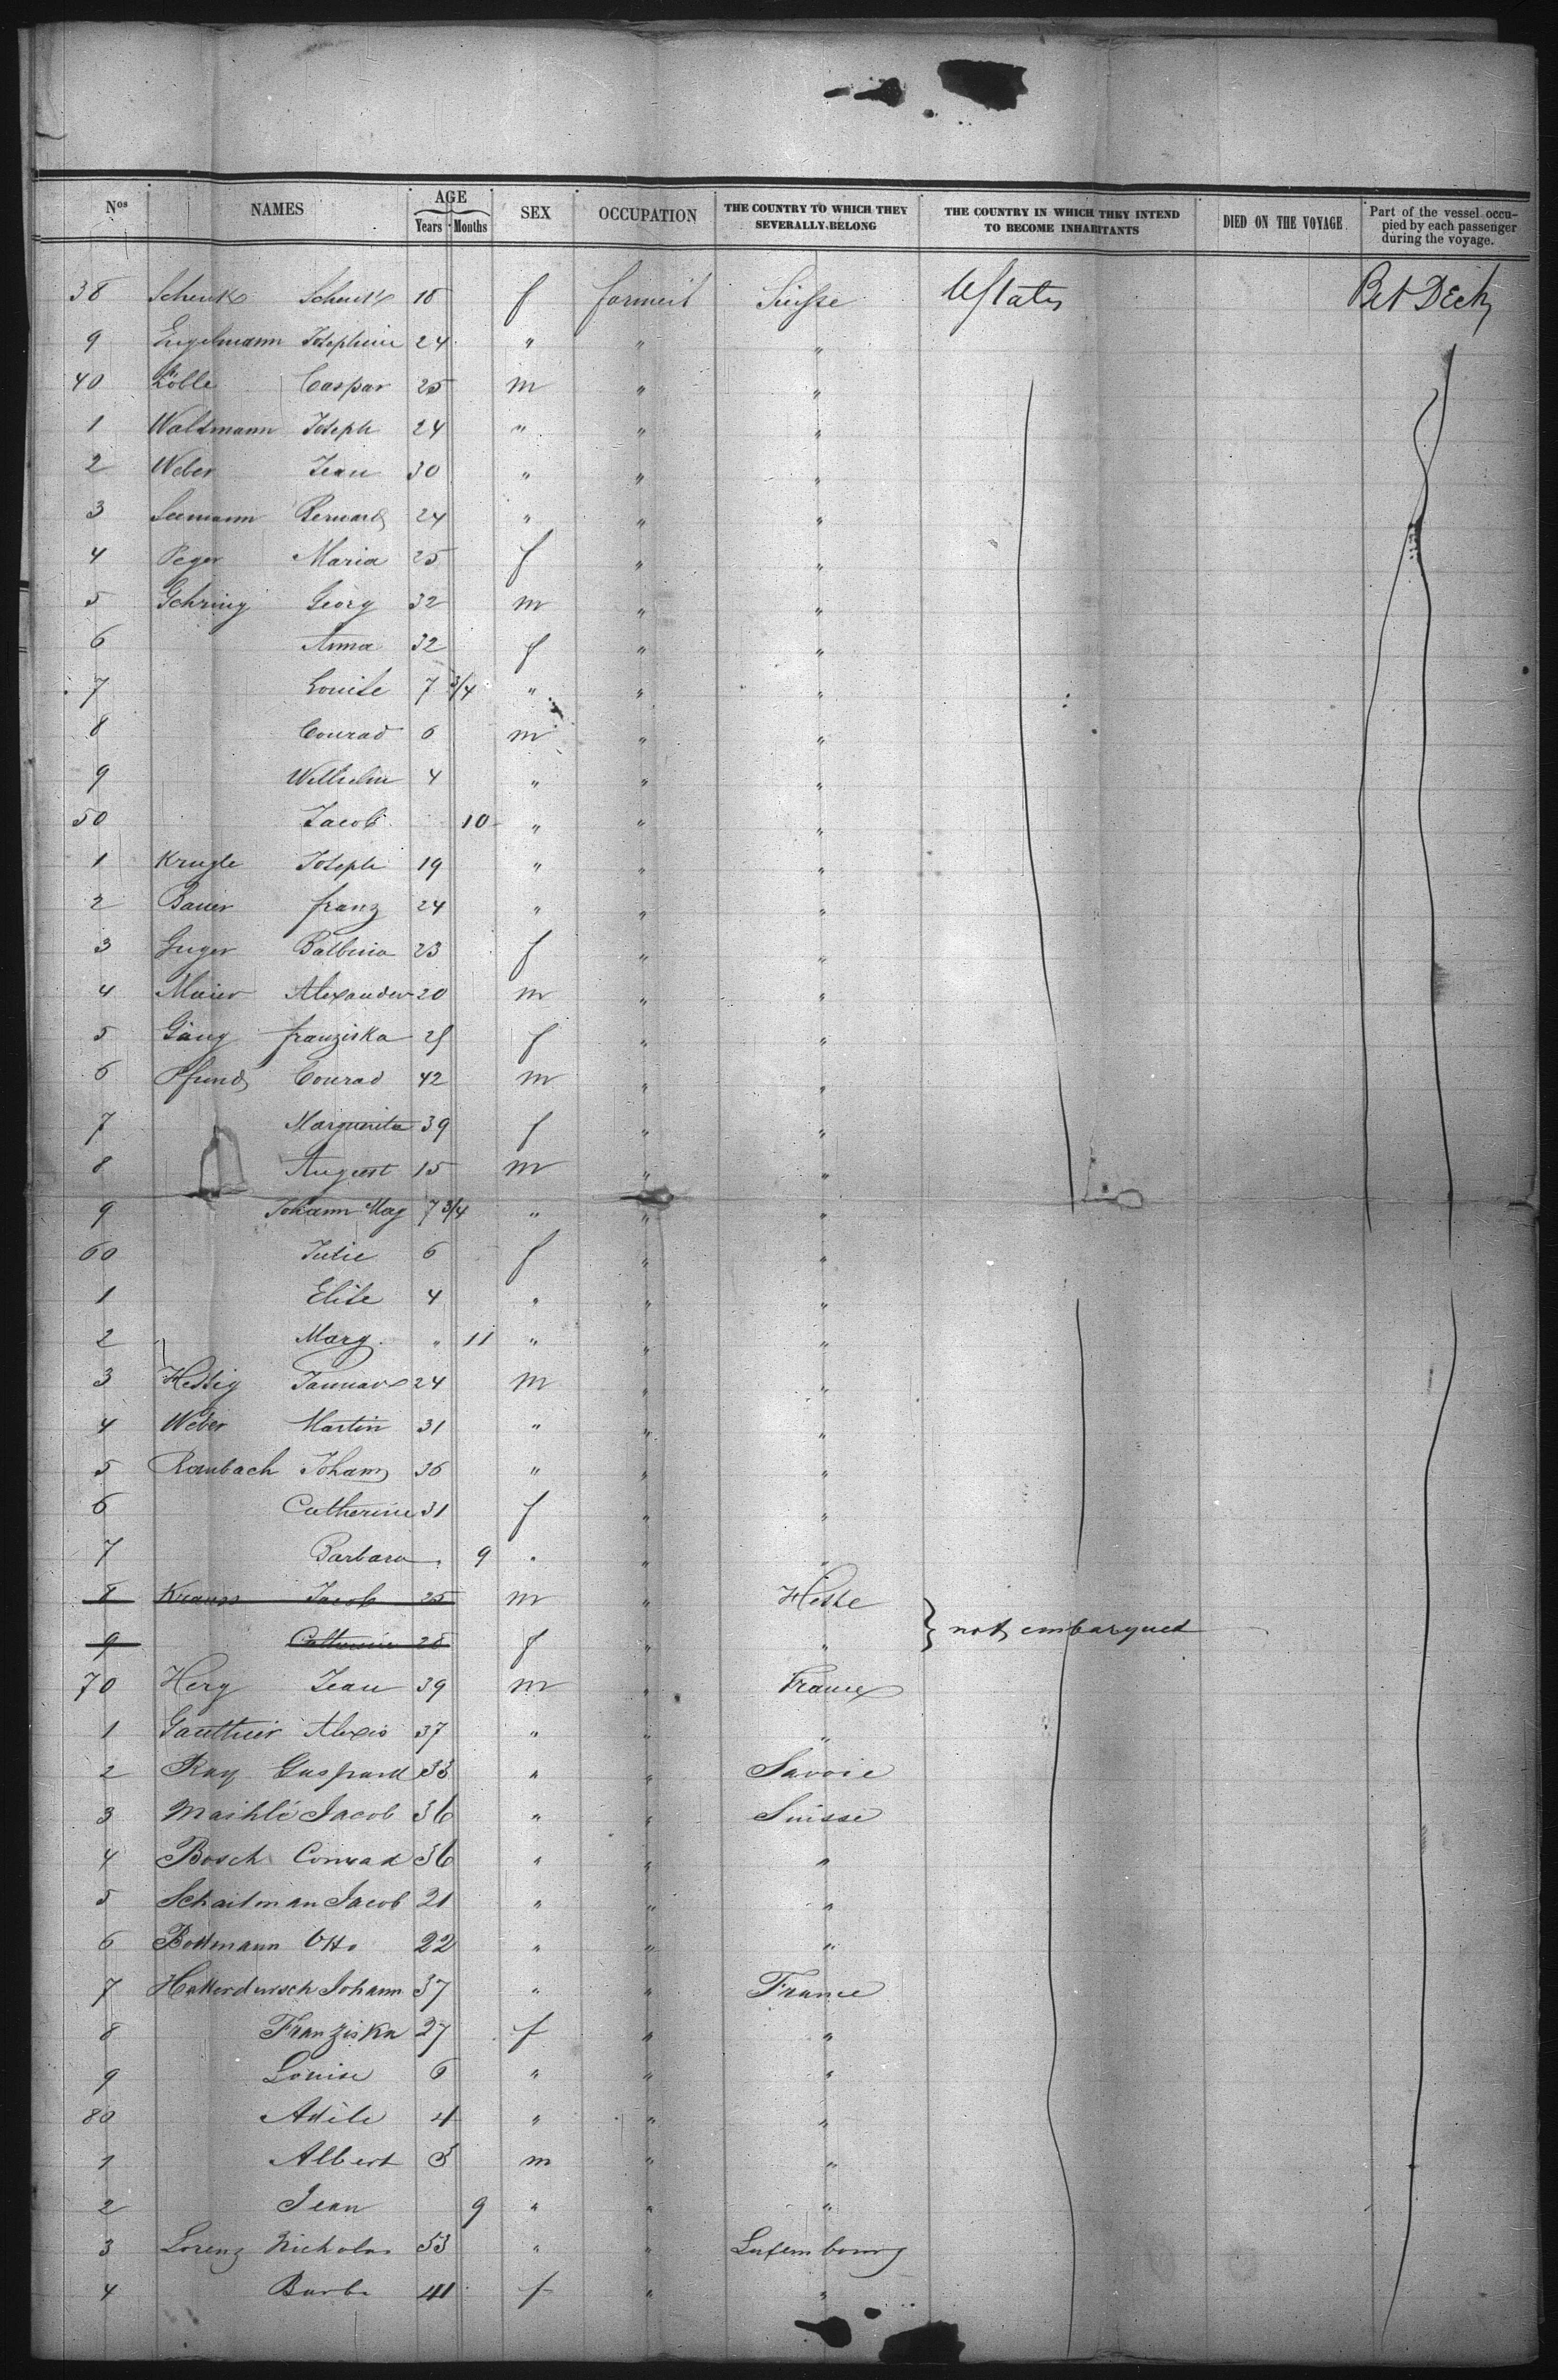 Nos NAMES AGE Years Months SEX OCCUPATION THE COUNTRY TO WHICH THEY SEVERALLY BELONG THE COUNTRY IN WHICH THEY INTEND TO BECOME INHABITANTS DIED ON THE VOYAGE Part of the vessel occupied by each passenger during the voyage.
38 Schenk 18 f Suisse UStates Bet Deck
9 Engelmann Josephine 24 " " "
40 Caspar 25 m " "
1 Waldmann Joseph 24 " " "
2 Weber Jean 30 " " "
3 Seemann Bernard 24 " " "
4 Peger Maria 25 f " "
5 Gehring Georg 32 m " "
6 Anna 32 f " "
7 Louise 7 3/4 " " "
8 Conrad 6 m " "
9 Wilhelm 4 " " "
50 Jacob 10 " " "
1 Krugle Joseph 19 " " "
2 Bauer franz 24 " " "
3 Balbina 23 f " "
4 Maier Alexander 20 m " "
5 Gäng franziska 25 f " "
6 Pfund Conrad 42 m " "
7 Marguerita 39 f " "
8 August 15 m " "
9 Johann Mag 7 3/4 " " "
60 Julie 6 f " "
1 Elise 4 " " "
2 Mary " 11 " " "
3 Hessig 24 m " "
4 Weber Martin 31 " " "
5 Raubach Johann 36 " " "
6 Catherine 31 f " "
7 Barbara " 9 " " "
8 Krauss Jacob 25 m " Hesse
9 Catherine 28 f " " } not embarqued
70 Herg Jean 39 m " France
1 Gauthier Alexis 37 " " "
2 Ray Gaspard 33 " " Savoie
3 Maihlé Jacob 36 " " Suisse
4 Bosch Conrad 36 " " "
5 Jacob 21 " " "
6 Bottmann Otto 22 " " "
7 Johann 37 " " France
8 Franziska 27 f " "
9 Louise 6 " " "
80 Adèle 4 " " "
1 Albert 3 m " "
2 Jean 9 " " "
3 Lorenz Nicholas 53 " " Luxembourg
4 Barbe 41 f " "